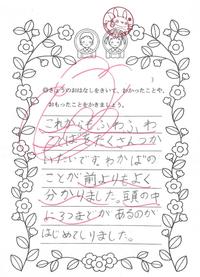 きょうのおはなしをきいて、わかったことや、
おもったことをかきましょう。
これからもふわふわ
ことばをたくさんつか
いたいですわかばの
ことが前よりもよく
分かりました。頭の中
に3つまどがあるのが
はじめてしりました。